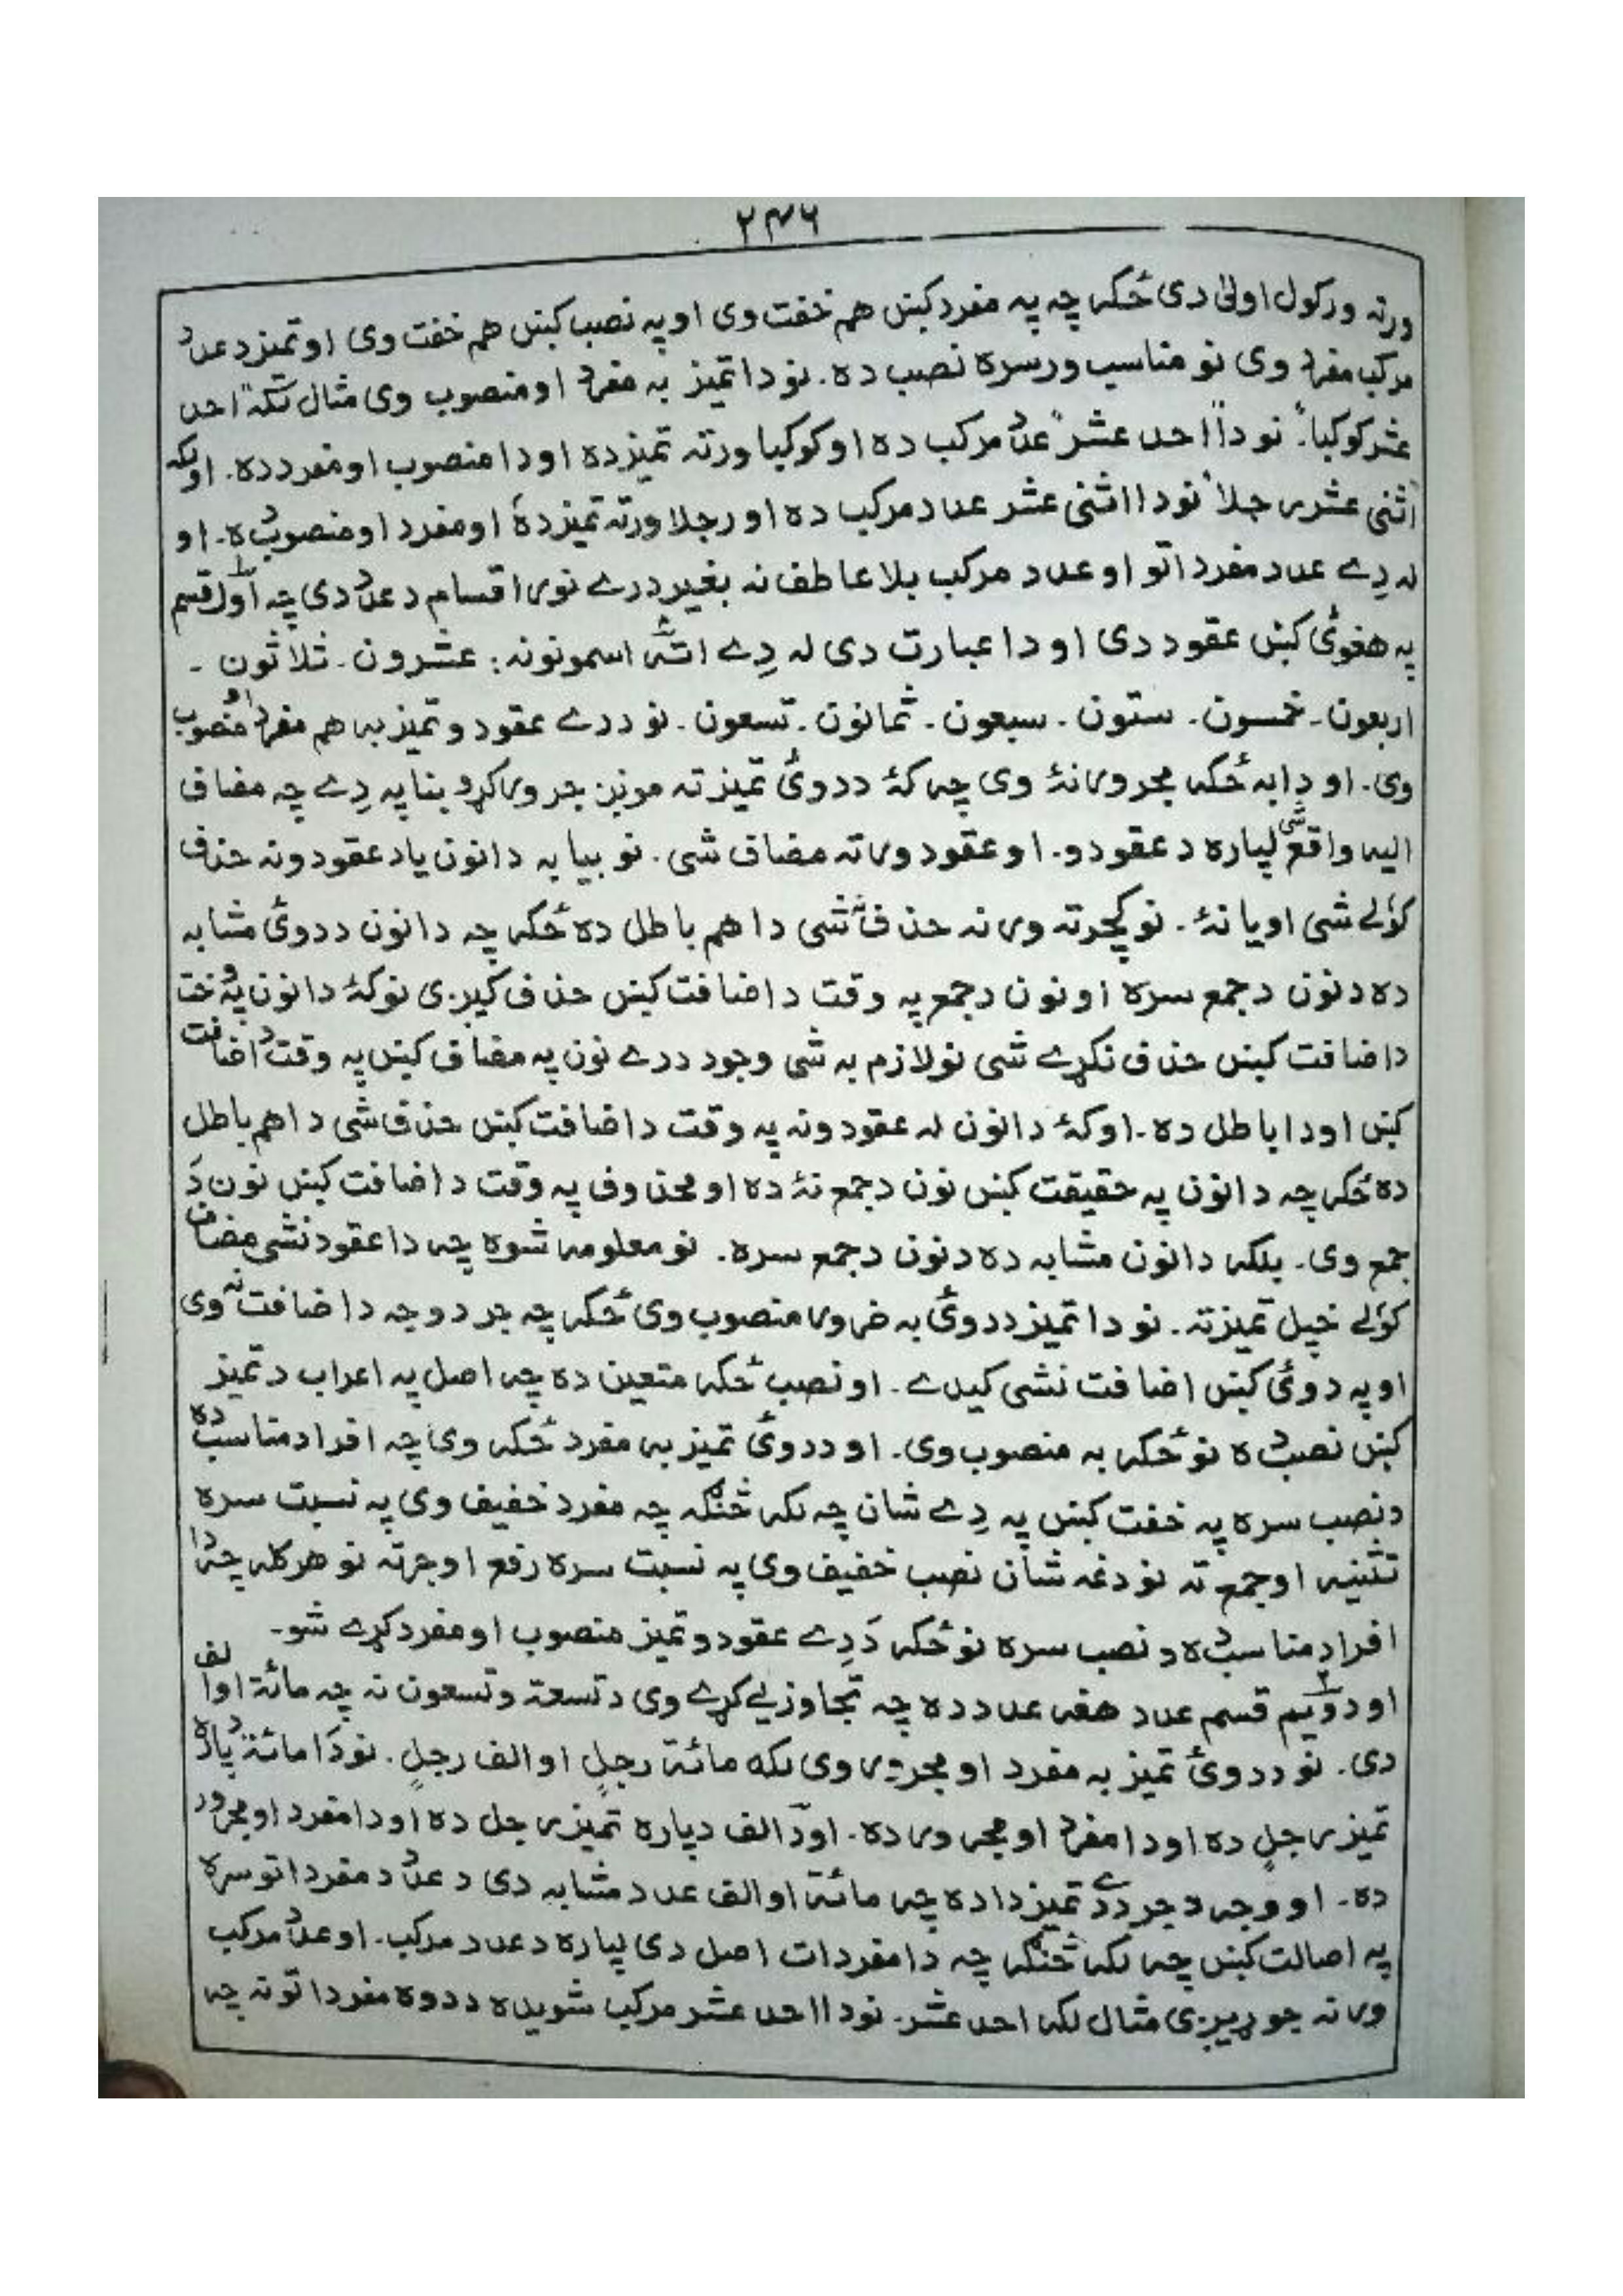 ۲۴۶
ورته ورکول اولیٰ دی ځکه چه په مفرد کښ هم خفت وی او په نصب کښ هم خفت وی او تمیز د عدد
مرکب مفرد وی نو مناسب ورسره نصب ده. نو دا تمیز به مفرد او منصوب وی مثال لکه "احد
عشر کوکبا". نو دا "احد عشر" عدد مرکب ده او کوکبا ورته تمیز ده او دا منصوب او مفرد ده. او لکه
"اثنی عشر رجلا" نو دا اثنی عشر عدد مرکب ده او رجلا ورته تمیز ده او مفرد او منصوب ده. او
له دِے عدد مفرداتو او عدد مرکب بلا عاطف نه بغیر درے نور اقسام د عدد دی چه اول قسم
په هغوئ کښ عقود دی او دا عبارت دی له دِے اتهٔ اسمونونه: عشرون ـ ثلاثون ـ
اربعون ـ خمسون ـ ستون ـ سبعون ـ ثمانون ـ تسعون ـ نو د دے عقودو تمیز به هم مفرد او منصوب
وی. او دا به ځکه مجرور نهٔ وی چه کهٔ د دوئ تمیز ته مونږ جر ورکړو بنا په دِے چه مضاف
الیه واقع شی لپاره د عقودو. او عقود ورته مضاف شی. نو بیا به دا نون یا د عقودو نه حذف
کؤلے شی او یا نهٔ. نو کچرته ورنه حذف نه شی دا هم باطل ده ځکه چه دا نون د دوئ مشابه
ده د نون د جمع سره او نون د جمع په وقت د اضافت کښ حذف کیږی نو کهٔ دا نون په وخت
د اضافت کښ حذف نکړے شی نو لازم به شی وجود د دے نون په مضاف کښ په وقت د اضافت
کښ او دا باطل ده. او کهٔ دا نون له عقودو نه په وقت د اضافت کښ حذف شی دا هم باطل
ده ځکه چه دا نون په حقیقت کښ نون د جمع نهٔ ده او محذوف په وقت د اضافت کښ نون دَ
جمع وی. بلکه دا نون مشابه ده د نون د جمع سره. نو معلومه شوه چه دا عقود نشی مضاف
کؤلے خپل تمیز ته. نو دا تمیز د دوئ به ضرور منصوب وی ځکه چه جر د وجه د اضافت نه وی
او په دوئ کښ اضافت نشی کیدے. او نصب ځکه متعین ده چه اصل په اعراب د تمیز
کښ نصب ده نو ځکه به منصوب وی. او د دوئ تمیز به مفرد ځکه وی چه افراد مناسب ده
د نصب سره په خفت کښ په دِے شان چه لکه څنګه چه مفرد خفیف وی په نسبت سره
تثنیه او جمع ته نو دغه شان نصب خفیف وی په نسبت سره رفع او جر ته نو هر کله چه دا
افراد مناسب ده د نصب سره نو ځکه دَ دِے عقودو تمیز منصوب او مفرد کړے شو.
او دویم قسم عدد هغه عدد ده چه تجاوز یے کړے وی د تسعة وتسعون نه چه مائة او الف
دی. نو د دوئ تمیز به مفرد او مجرور وی لکه مائة رجلٍ او الف رجلٍ. نو دَا مائة دپاره
تمیز رجلٍ ده او دا مفرد او مجرور ده. او دَ الف دپاره تمیز رجل ده او دا مفرد او مجرور
ده. او وجه د جر د دے تمیز دا ده چه مائة او الف عدد مشابه دی د عدد د مفرداتو سره
په اصالت کښ چه لکه څنګه چه دا مفردات اصل دی لپاره د عدد مرکب. او عدد مرکب
ورنه جوړیږی مثال لکه احد عشر. نو دا احد عشر مرکب شویده د دوه مفرداتو نه چه